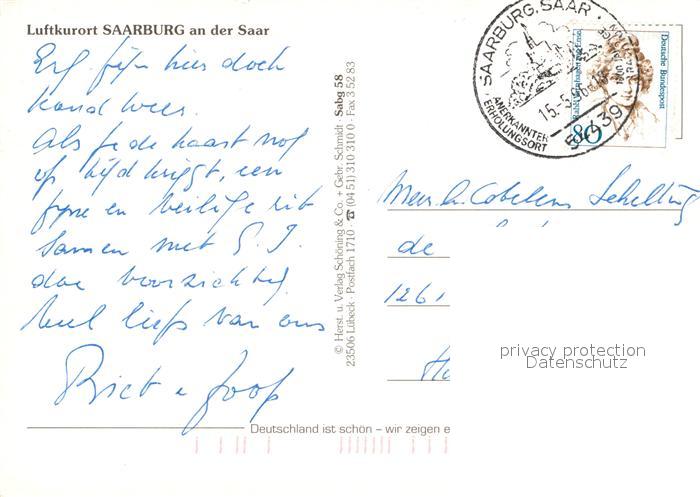 Luftkurort SAARBURG an der Saar
Erg fijn hier doch
Als je de kaart nog
op tijd krijgt, een
fijne en veilige rit
samen met G. J.
doe voorzichtig.
Veel liefs van ons
Riet e Joop
Deutschland ist schön – wir zeigen e
© Herst. u. Verlag Schöning & Co. + Gebr. Schmidt Sabg 58
23506 Lübeck · Postfach 1710 · ☎ (04 51) 310 310 0 · Fax 3 52 83
SAARBURG, SAAR
15.-5.
ANERKANNTER
ERHOLUNGSORT
54439
Deutsche Bundespost
80
de
1261
privacy protection
Datenschutz